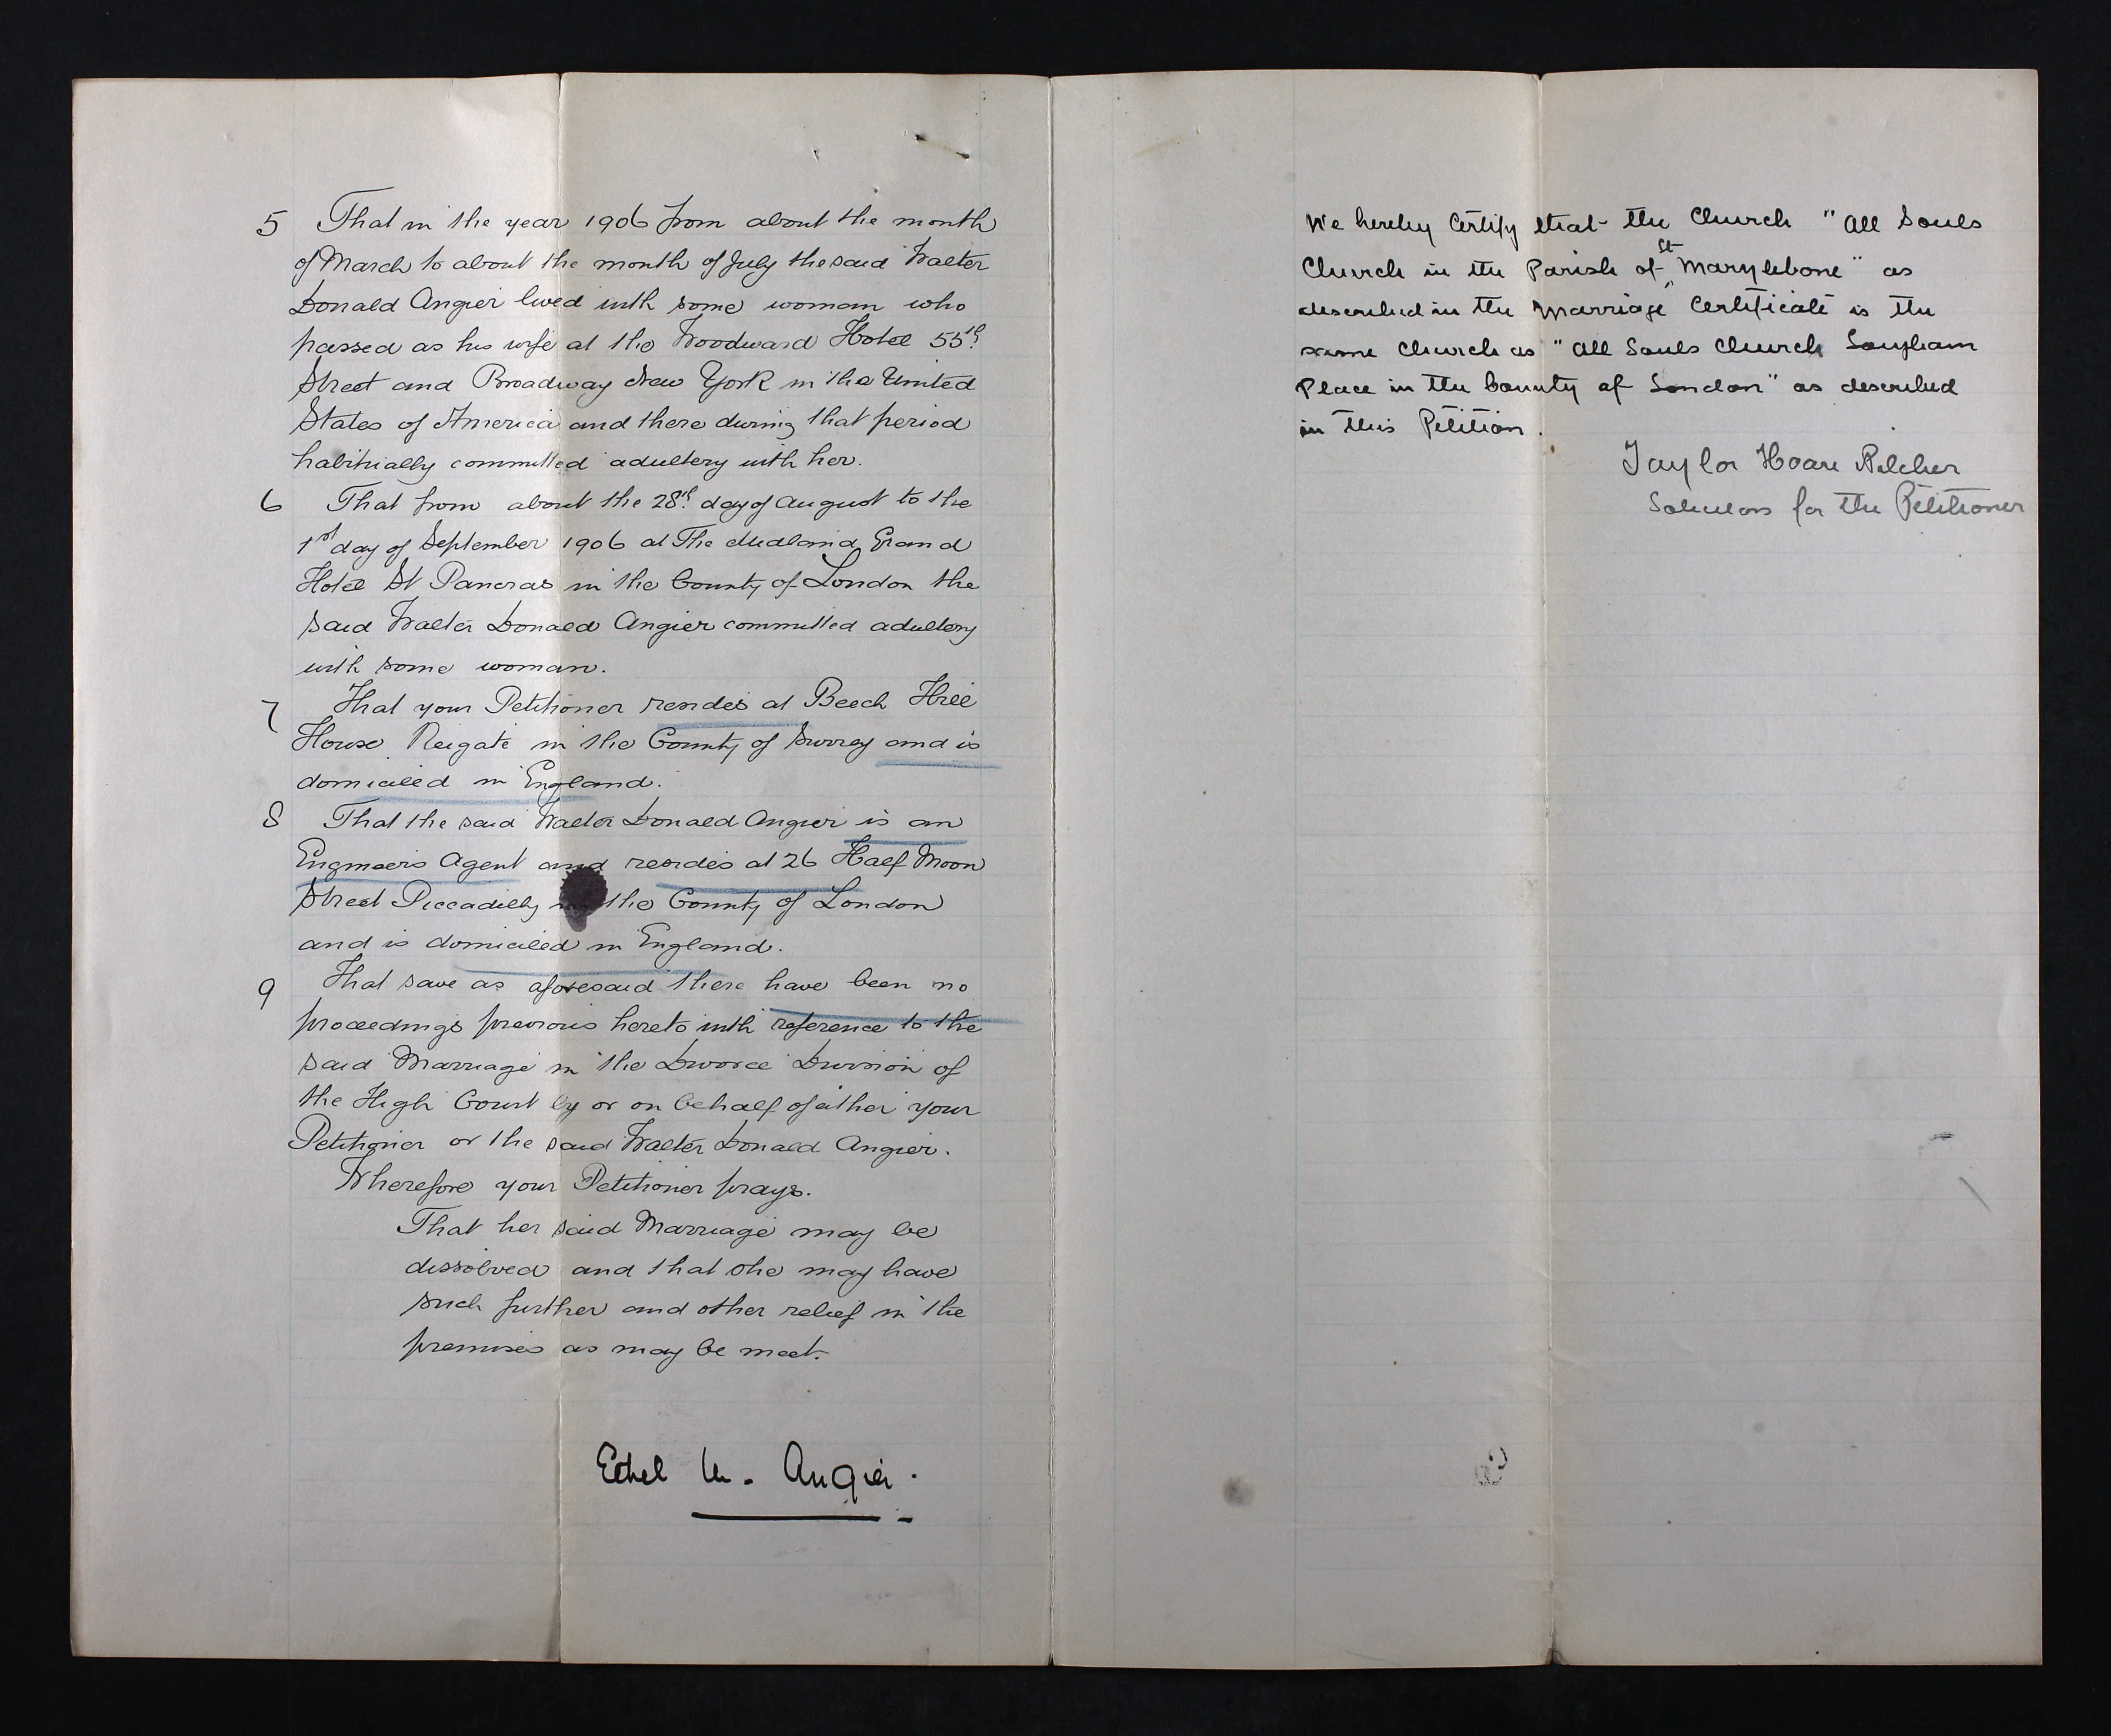 5 That in the year 1906 from about the month
of March to about the month of July the said Walter
Donald Angier lived with some woman who
passed as his wife at the Woodward Hotel 55th
Street and Broadway New York in the United
States of America and there during that period
habitually committed adultery with her.
6 That from about the 28th day of August to the
1st day of September 1906 at The Midland Grand
Hotel St Pancras in the County of London the
said Walter Donald Angier committed adultery
with some woman.
7 That your Petitioner resides at Beech Hill
House Reigate in the County of Surrey and is
domiciled in England.
8 That the said Walter Donald Angier is an
Engineers Agent and resides at 26 Half Moon
Street Piccadilly in the County of London
and is domiciled in England.
9 That save as aforesaid there have been no
proceedings previous hereto with reference to the
said Marriage in the Divorce Division of
the High Court by or on behalf of either your
Petitioner or the said Walter Donald Angier.
Wherefore your Petitioner prays.
That her said Marriage may be
dissolved and that she may have
such further and other relief in the
premises as may be meet.
Ethel M. Angier.
We hereby Certify that the Church "All Souls
Church in the Parish of St Marylebone" as
described in the Marriage Certificate is the
same Church as "All Souls Church Langham
Place in the County of London" as described
in this Petition.
Taylor Hoare Pilcher
Solicitors for the Petitioner